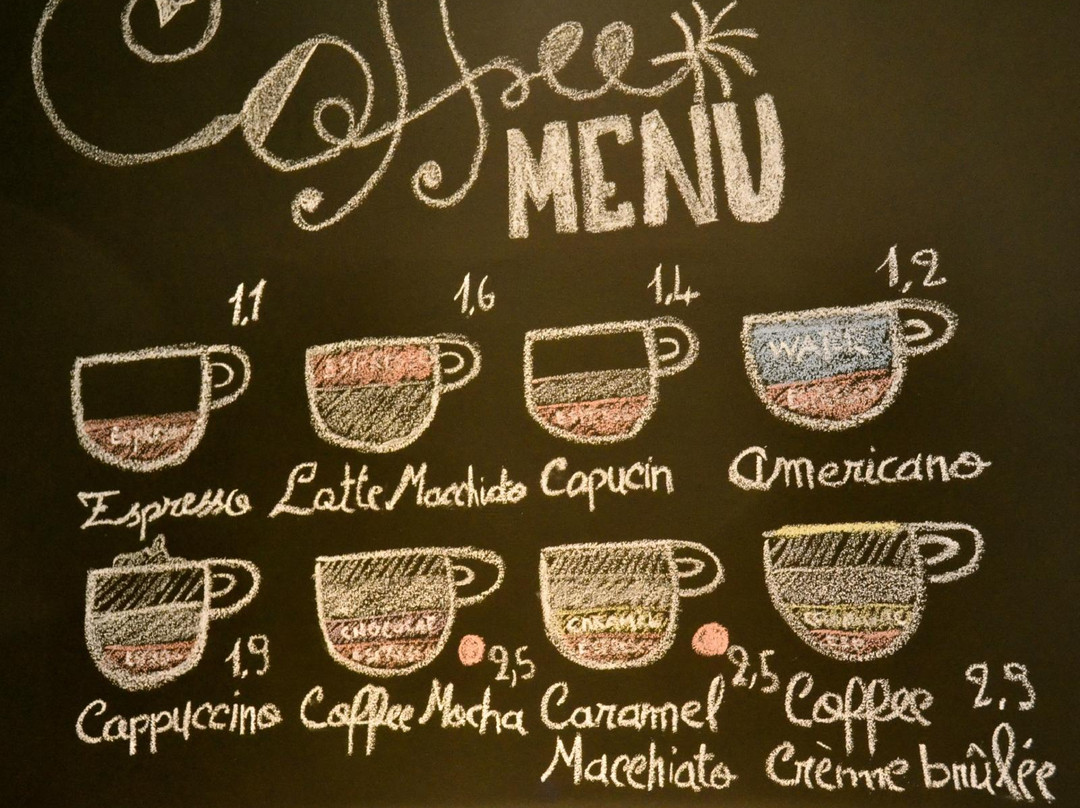 Coffee
MENU
1,1
1,6
1,4
1,2
ESPRESSO
WATER
Espresso
Espresso
Latte Macchiato
Capucin
Americano
CHOCOLAT
CARAMEL
ESPRESSO
1,9
2,5
2,5
2,9
Cappuccino
Coffee Mocha
Caramel
Macchiato
Coffee
Crème brûlée